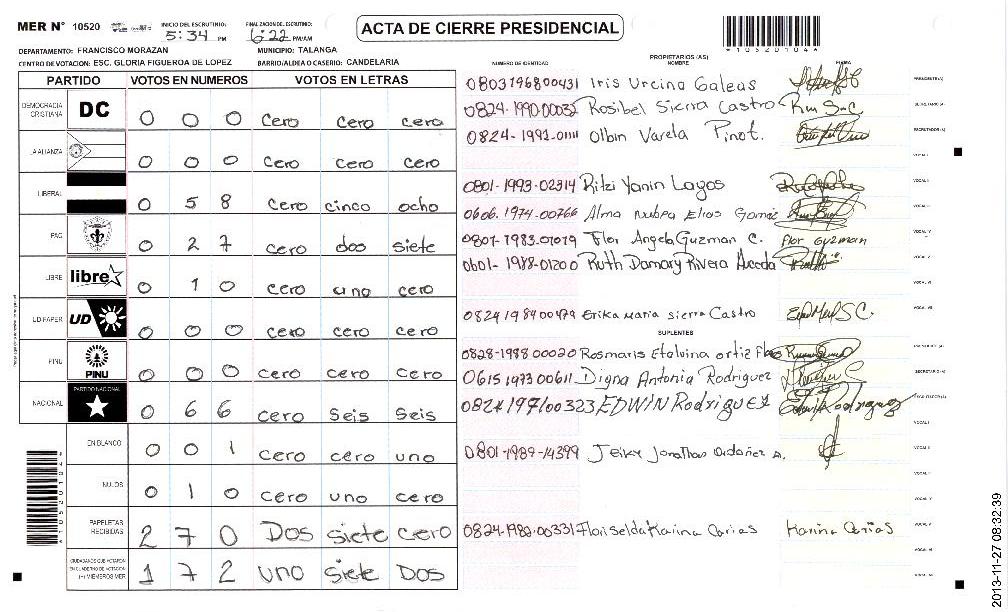 MER N° 10520
INICIO DEL ESCRUTINIO: 5:34 PM
FINALIZACION DEL ESCRUTINIO: 6:22 PM/AM
ACTA DE CIERRE PRESIDENCIAL
*10520104*
DEPARTAMENTO: FRANCISCO MORAZAN MUNICIPIO: TALANGA
CENTRO DE VOTACION: ESC. GLORIA FIGUEROA DE LOPEZ BARRIO/ALDEA O CASERIO: CANDELARIA
PARTIDO VOTOS EN NUMEROS VOTOS EN LETRAS
DEMOCRACIA CRISTIANA DC 0 0 0 cero cero cero
LA ALIANZA 0 0 0 cero cero cero
LIBERAL 0 5 8 cero cinco ocho
PAC 0 2 7 cero dos siete
LIBRE libre 0 1 0 cero uno cero
UD FAPER UD 0 0 0 cero cero cero
PINU PINU 0 0 0 cero cero cero
NACIONAL PARTIDO NACIONAL 0 6 6 cero Seis Seis
EN BLANCO 0 0 1 cero cero uno
NULOS 0 1 0 cero uno cero
PAPELETAS RECIBIDAS 2 7 0 DOS siete cero
CIUDADANOS QUE VOTARON EN CUADERNO DE VOTACION (+) MIEMBROS MER 1 7 2 uno Siete Dos
PROPIETARIOS (AS)
NUMERO DE IDENTIDAD NOMBRE FIRMA
0803196800431 Iris Urcina Galeas PRESIDENTE(A)
0824-1990-00032 Rosibel Sierra Castro SECRETARIO (A)
0824-1991-0111 Olbin Varela Pinot. ESCRUTADOR (A)
VOCAL I
0801-1993-02314 Ritzi Yanin Lagos VOCAL II
0606.1974-00766 Alma Elias VOCAL III
0801-1983-01019 Flor Angela Guzman C. Flor Guzman VOCAL IV
0601-1988-01200 Ruth Damary Rivera Aceda VOCAL V
VOCAL VI
0824198400479 Erika Maria sierra Castro VOCAL VII
SUPLENTES
0828-198800020 Rosmaris Etelvina ortiz PRESIDENTE (A)
0615197300611 Digna Antonia Rodriguez SECRETARIO (A)
0824197100323 EDWIN Rodriguez ESCRUTADOR (A)
VOCAL I
0801-1989-14399 Jeiky Jonathan Ordoñez A. VOCAL II
0824-1980-00331 Floriselda Karina Carias Karina Carias VOCAL V
2013-11-27 08:32:39